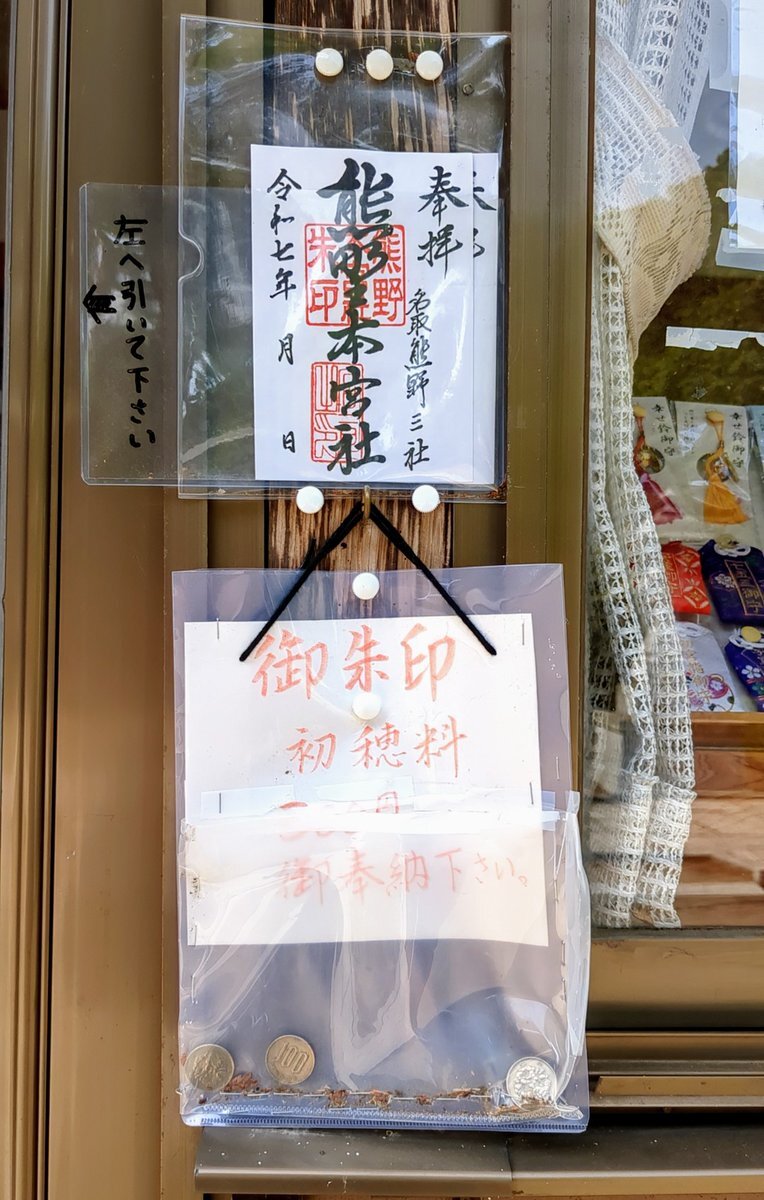 奉拝
名取熊野三社
熊野本宮社
熊野
朱印
令和七年 月 日
左へ引いて下さい
御朱印
初穂料
300円
御奉納下さい。
100
幸せ鈴御守
幸せ鈴御守